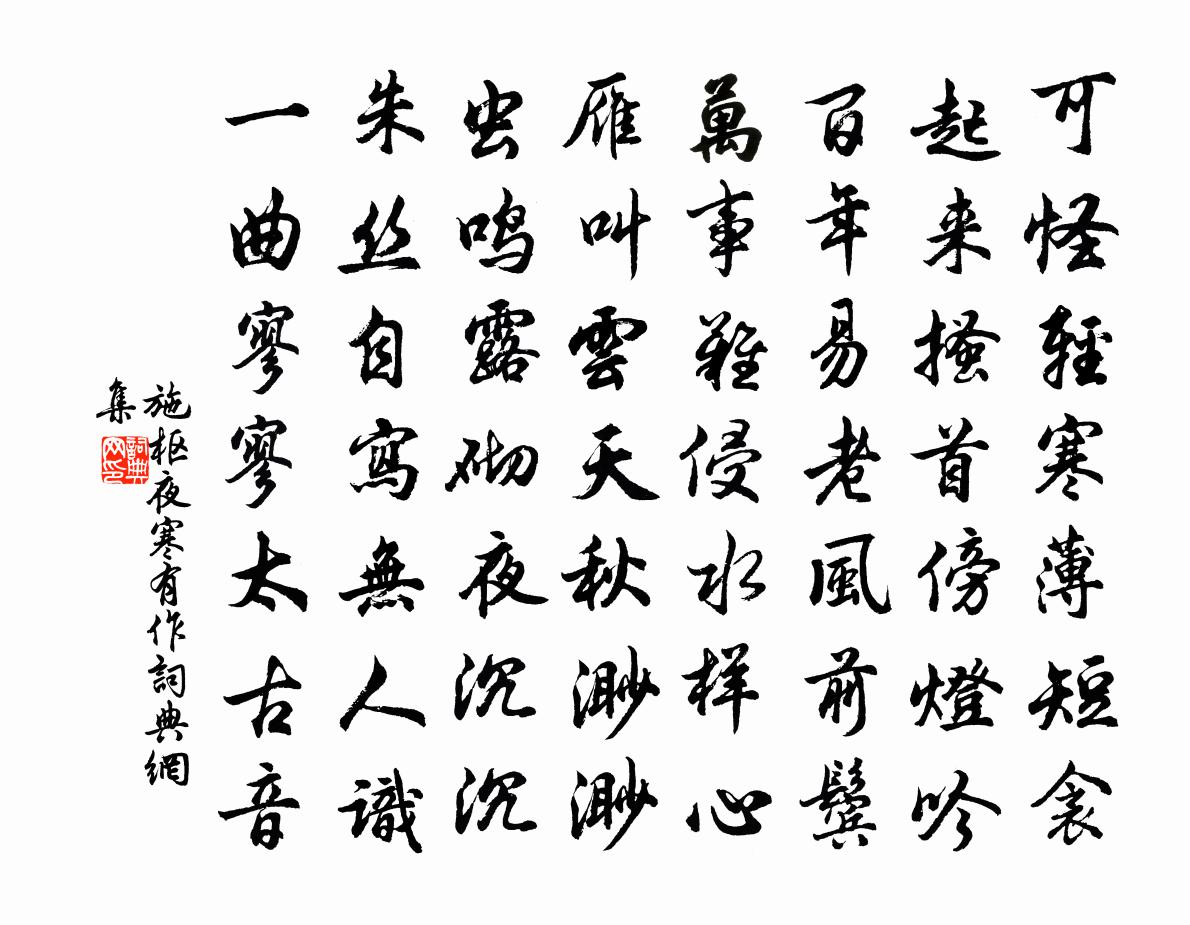 可怪輕寒薄短衾
起来搔首傍燈吟
百年易老風前鬢
萬事難侵水样心
雁叫雲天秋渺渺
虫鳴露砌夜沉沉
朱丝自寫無人識
一曲寥寥太古音
施枢夜寒有作詞典網
集
詞典
网印